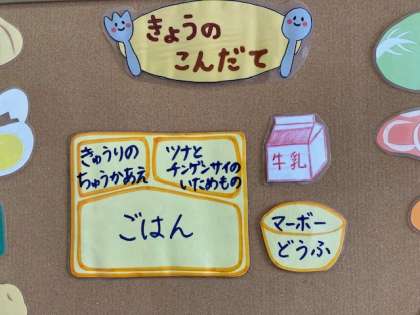 きょうの
こんだて
きゅうりの
ちゅうかあえ
ツナと
チンゲンサイの
いためもの
ごはん
牛乳
マーボー
どうふ